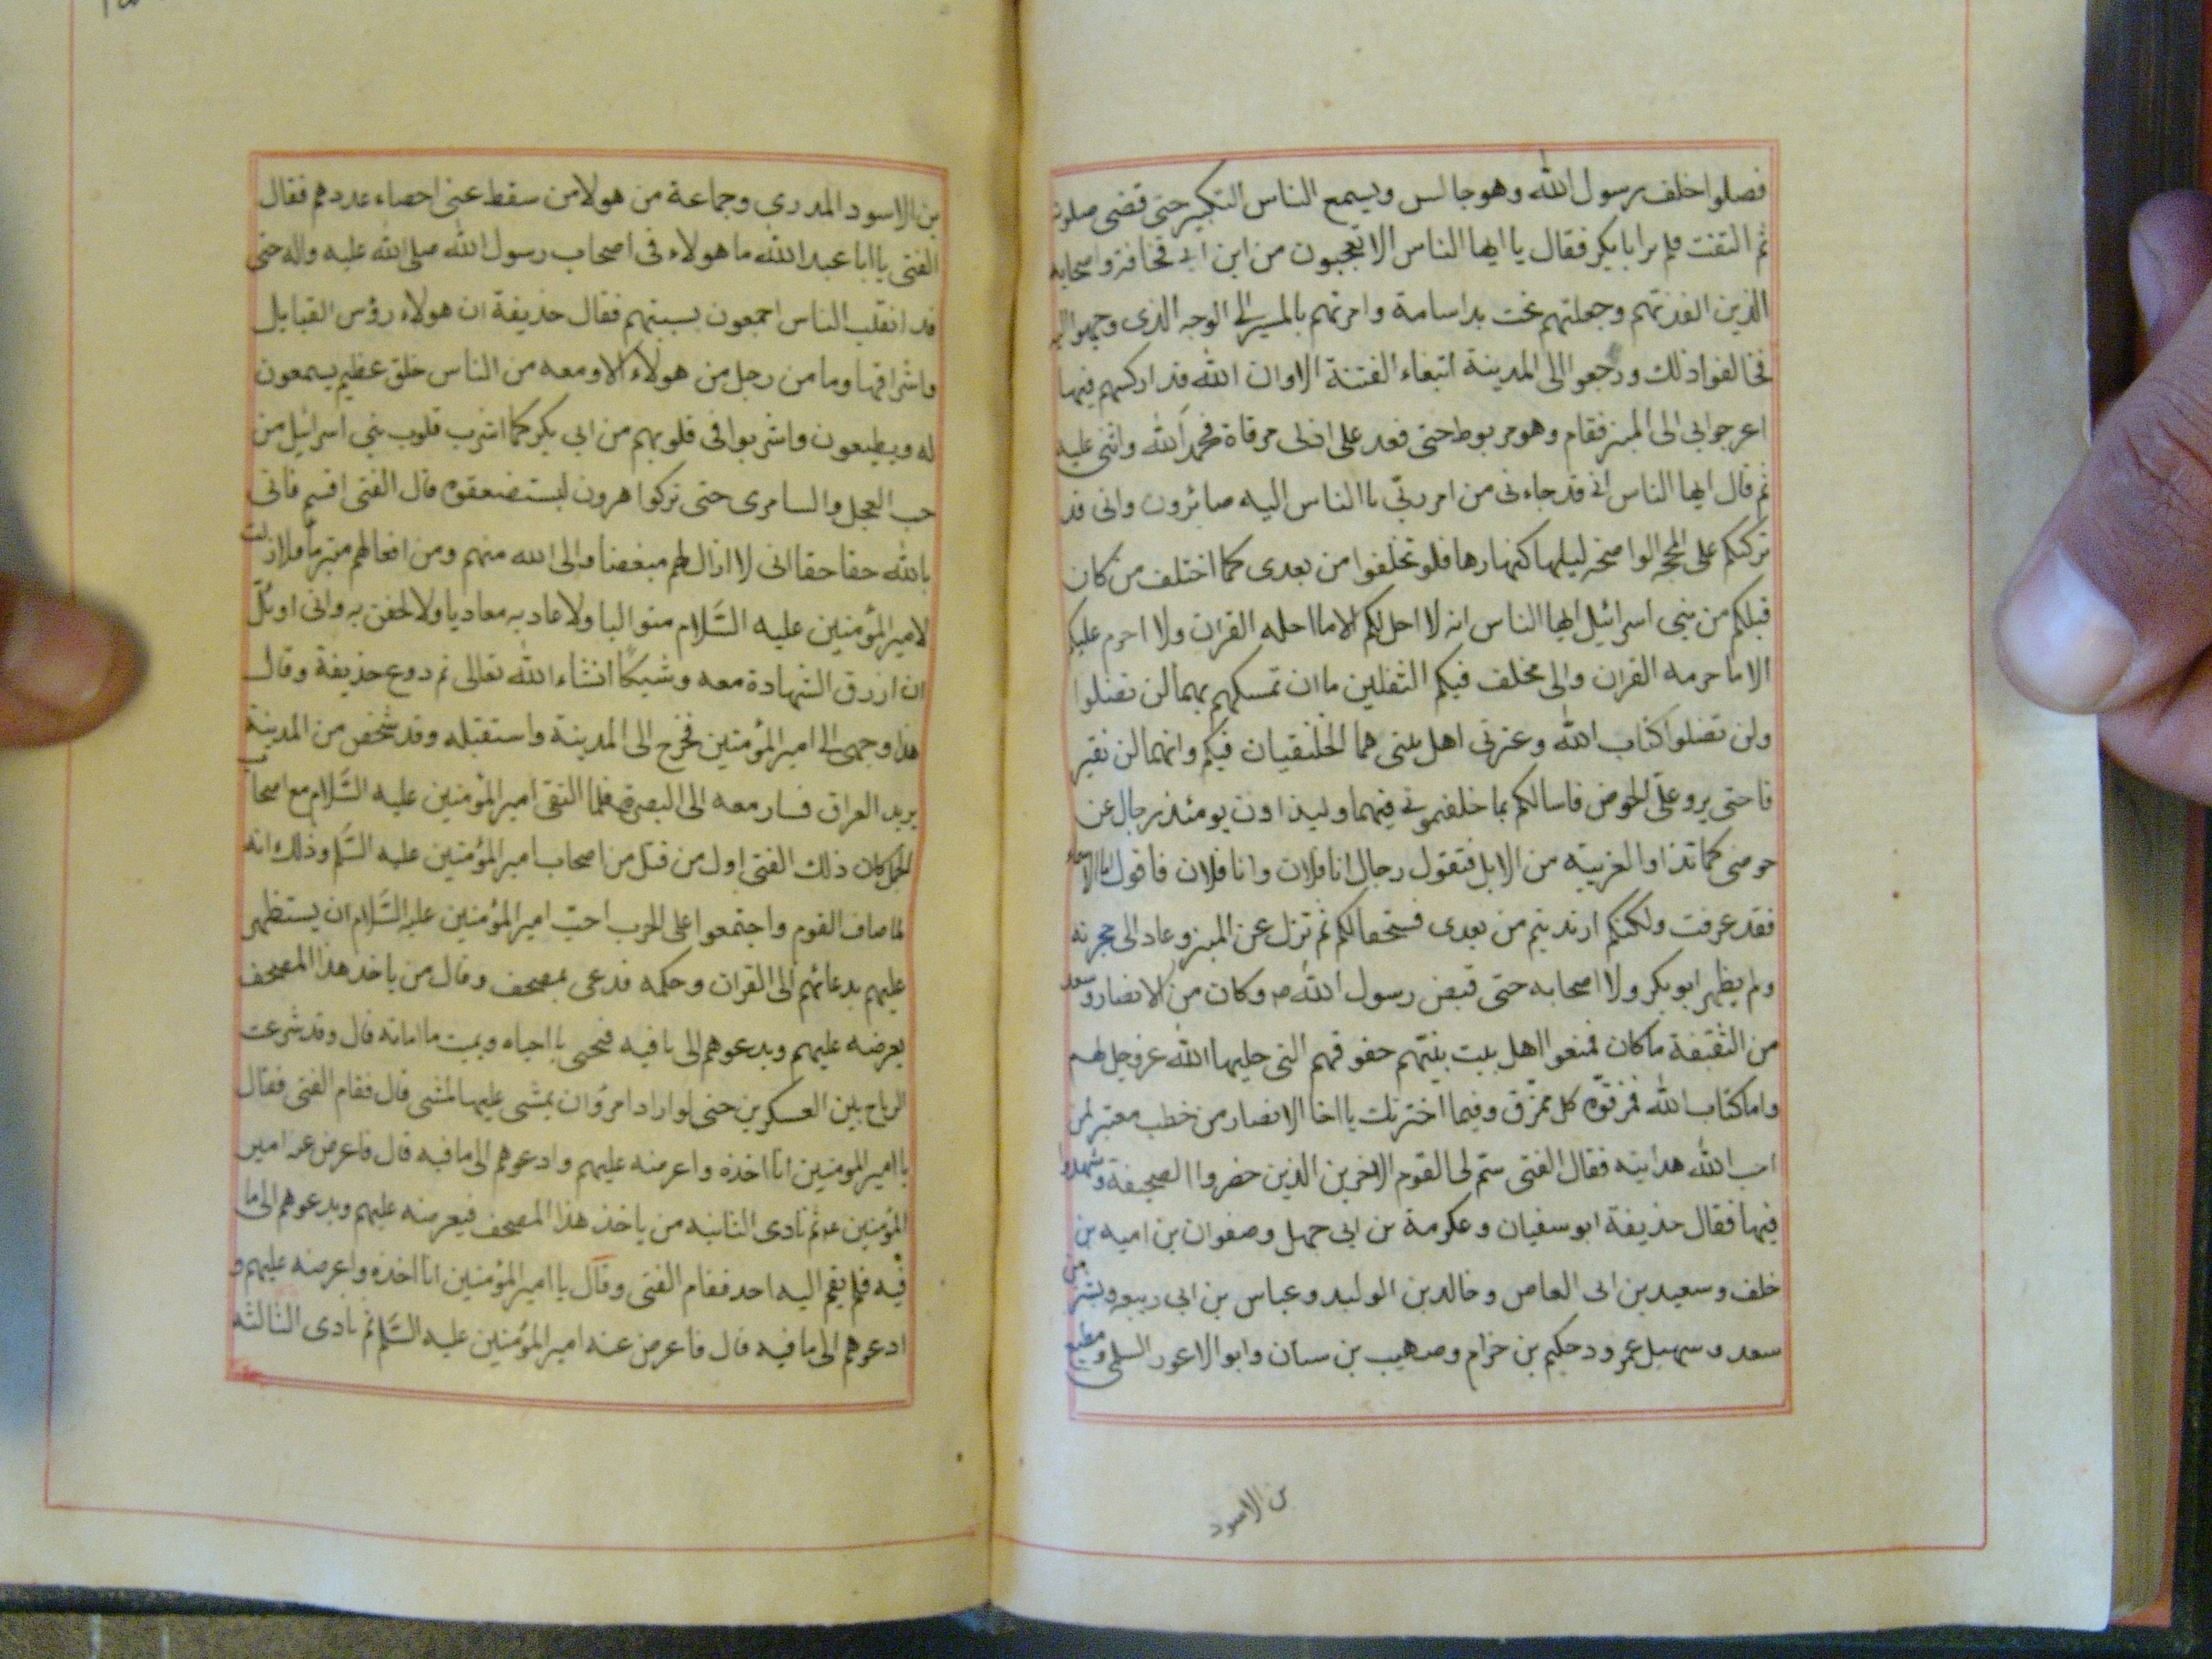 فصلوا خلف رسول الله وهو جالس ويسمع الناس التكبير حتى قضى صلوته
ثم التفت فلم ير ابا بكر فقال يا ايها الناس الا تعجبون من ابن ابي قحافة واصحابه
الذين انفذتهم وجعلتهم تحت يد اسامة وامرتهم بالمسير الى الوجه الذى وجهوا اليه
فخالفوا ذلك ورجعوا الى المدينة ابتغاء الفتنة الا وان الله قد اركسهم فيها
اعرجوابى الى المنبر فقام وهو مربوط حتى قعد على ادنى مرقاة فحمد الله واثنى عليه
ثم قال ايها الناس انى قد جاءنى من امر ربّى ما الناس اليه صائرون وانى قد
تركتكم على المحجه الواضحه ليلها كنهارها فلو تختلفوا من بعدى كما اختلف من كان
قبلكم من بنى اسرائيل ايها الناس انه لا احل لكم الا ما احله القران ولا احرم عليكم
الا ما حرمه القران وانى مخلف فيكم الثقلين ما ان تمسكهم بهما لن تضلوا
ولن تضلوا كتاب الله وعترتى اهل بيتى هما الخليفتان فيكم وانهما لن يفتر
قا حتى يردو علىّ الحوض فاسالكم بما خلفتمونى فيهما وليذادن يومئذ رجال عن
حوضى كما تذاد الغريبته من الابل فتقول رجال انا فلان وانا فلان فاقول اما الاسماء
فقد عرفت ولكنكم ارتديتم من بعدى فسحقا لكم ثم نزل عن المنبر وعاد الى حجرته
ولم يظهر ابو بكر ولا اصحابه حتى قبض رسول الله ص وكان من الانصار وسعد
من الثقيفة ما كان فمنعوا اهل بيت بيتهم حقوقهم التى جعلها الله عز وجل لهم
واما كتاب الله فمزقوّه كل ممزّق وفيما اخترتك يا اخا الانصار من خطب معتبر لمن
احب الله هدايته فقال الفتى ستم لى القوم الاخرين الذين حضروا الصحيفة وشهدوا
فيها فقال حذيفة ابو سفيان وعكرمة بن ابى جهل وصفوان بن اميه بن
خلف وسعيد بن ابى العاص وخالد بن الوليد وعباس بن ابى ربيعه وبشر بن
سعد وسهيل عمرو وحكيم بن خزام وصهيب بن سنان وابو الاعور السلمى ومطيع
بن الاسود
بن الاسود المدرى وجماعة من هولا من سقط عنى احصاء عددهم فقال
الفتى يا ابا عبد الله ما هولاء فى اصحاب رسول الله صلى الله عليه واله حتى
قد انقلب الناس اجمعون بسببهم فقال حذيفة ان هولاء رؤس القبايل
واشرافها وما من رجل من هولاء الا ومعه من الناس خلق عظيم يسمعون
له ويطيعون واشربوا فى قلوبهم من ابى بكر كما اشرب قلوب بنى اسرائيل من
حب العجل والسامرى حتى تركوا هرون ليستضعفوه قال الفتى اقسم فانى
بالله حقا حقا انى لا ازال لهم مبغضا والى الله منهم ومن افعالهم متبرما فلازلت
لامير المؤمنين عليه السّلام متواليا ولا عاديه معاديا ولا لحقن به وانى اؤمّل
ان ارزق الشهادة معه وشيكا انشاء الله تعالى ثم ودع حذيفة وقال
هذا وجهى الى امير المؤمنين فخرج الى المدينة واستقبله وقد شخص من المدينة
يريد العراق فسار معه الى البصرة فلما التقى امير المؤمنين عليه السّلام مع اصحاب
الجمل كان ذلك الفتى اول من قتل من اصحاب امير المؤمنين عليه السّلم وذلك انه
لما صاف القوم واجتمعوا على الحرب احبّ امير المؤمنين عليه السّلام ان يستظهر
عليهم بدعائهم الى القران وحكمه فدعى بمصحف وقال من ياخذ هذا المصحف
يعرضه عليهم ويدعوهم الى ما فيه فيحيى ما احياه ويميت ما اماته قال وقد شرعت
الرماح بين العسكرين حتى لو اراد امرؤ ان يمشى عليها لمشى قال فقام الفتى فقال
يا امير المومنين انا اخذه واعرضه عليهم وادعوهم الى ما فيه قال فاعرض عنه امير
المؤمنين ع ثم نادى الثانيه من ياخذ هذا المصحف فيعرضه عليهم ويدعوهم الى ما
فيه فلم يقم اليه احد فقام الفتى وقال يا امير المؤمنين انا اخذه واعرضه عليهم و
ادعوهم الى ما فيه قال فاعرض عنه امير المؤمنين عليه السّلم ثم نادى الثالثه